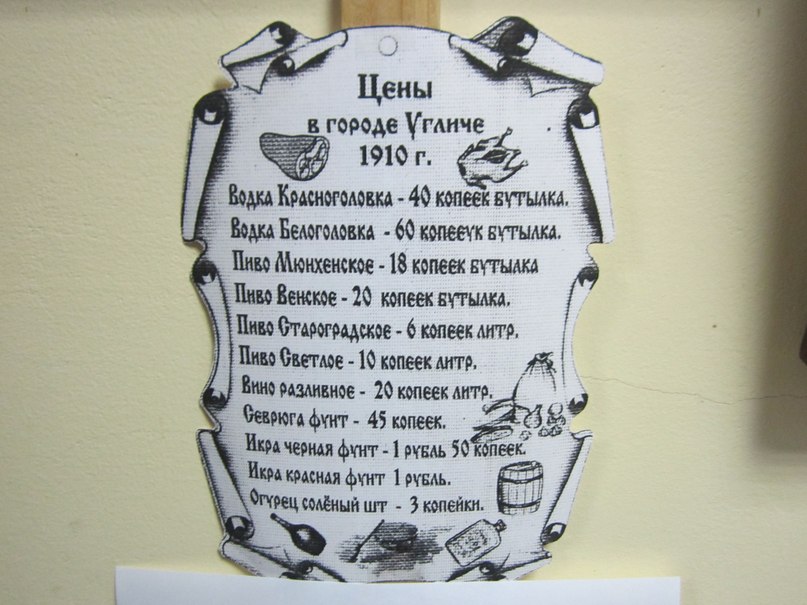 Цены
в городе Угличе
1910 г.
Водка Красноголовка - 40 копеек бутылка.
Водка Белоголовка - 60 копееук бутылка.
Пиво Мюнхенское - 18 копеек бутылка
Пиво Венское - 20 копеек бутылка.
Пиво Староградское - 6 копеек литр.
Пиво Светлое - 10 копеек литр.
Вино разливное - 20 копеек литр.
Севрюга фунт - 45 копеек.
Икра черная фунт - 1 рубль 50 копеек.
Икра красная фунт 1 рубль.
Огурец солёный шт - 3 копейки.